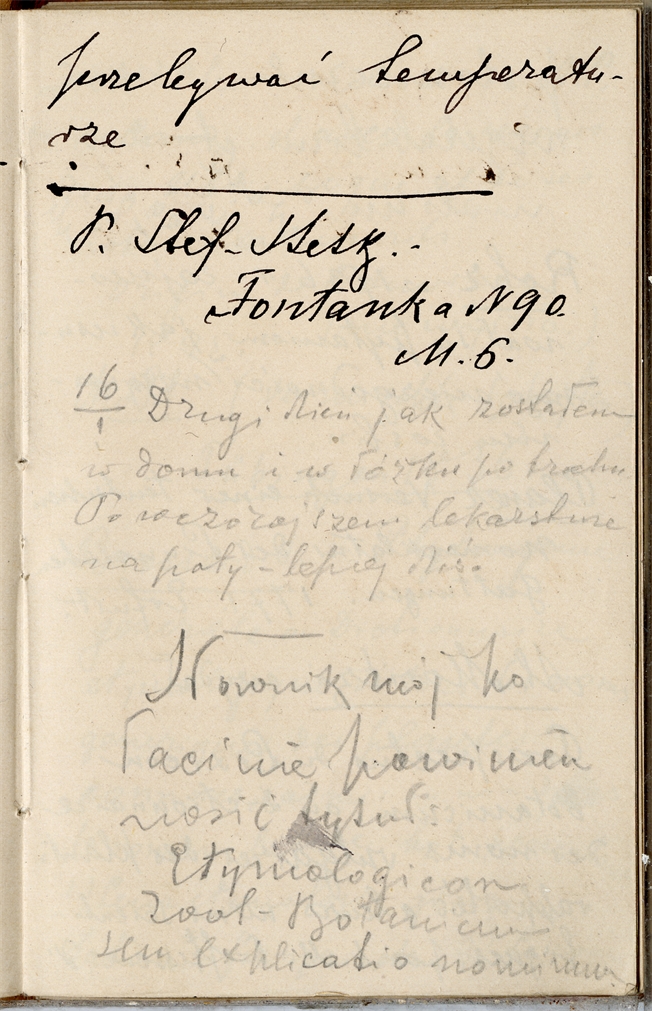 przebywać temperatu-
rze
P. Stef-
Fontanka N 90.
M. 6.
16/1 Drugi dzień jak zostałem
w domu i w łóżku po trochu
Po wczorajszem lekarstwie
na poty - lepiej dziś.
Słownik mój po
łacinie powinien
nosić tytuł:
Etymologicon
Zool- Botanicum
seu explicatio nominum